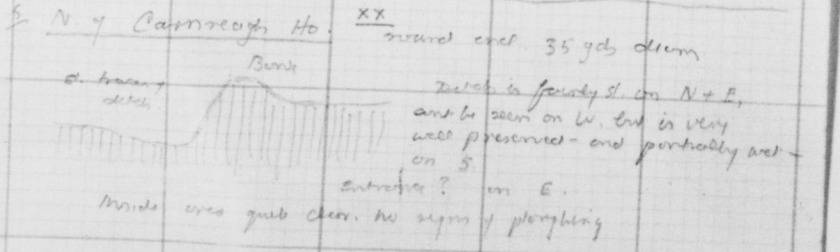 N of Carnreagh Ho. xx
round encl. 35 yds diam
Bank
sl. trace of
ditch
Ditch is fairly sl. on N + E,
cant be seen on W. but is very
well preserved - and partially wet -
on S.
entrance? on E.
Inside area quite clear. No signs of ploughing